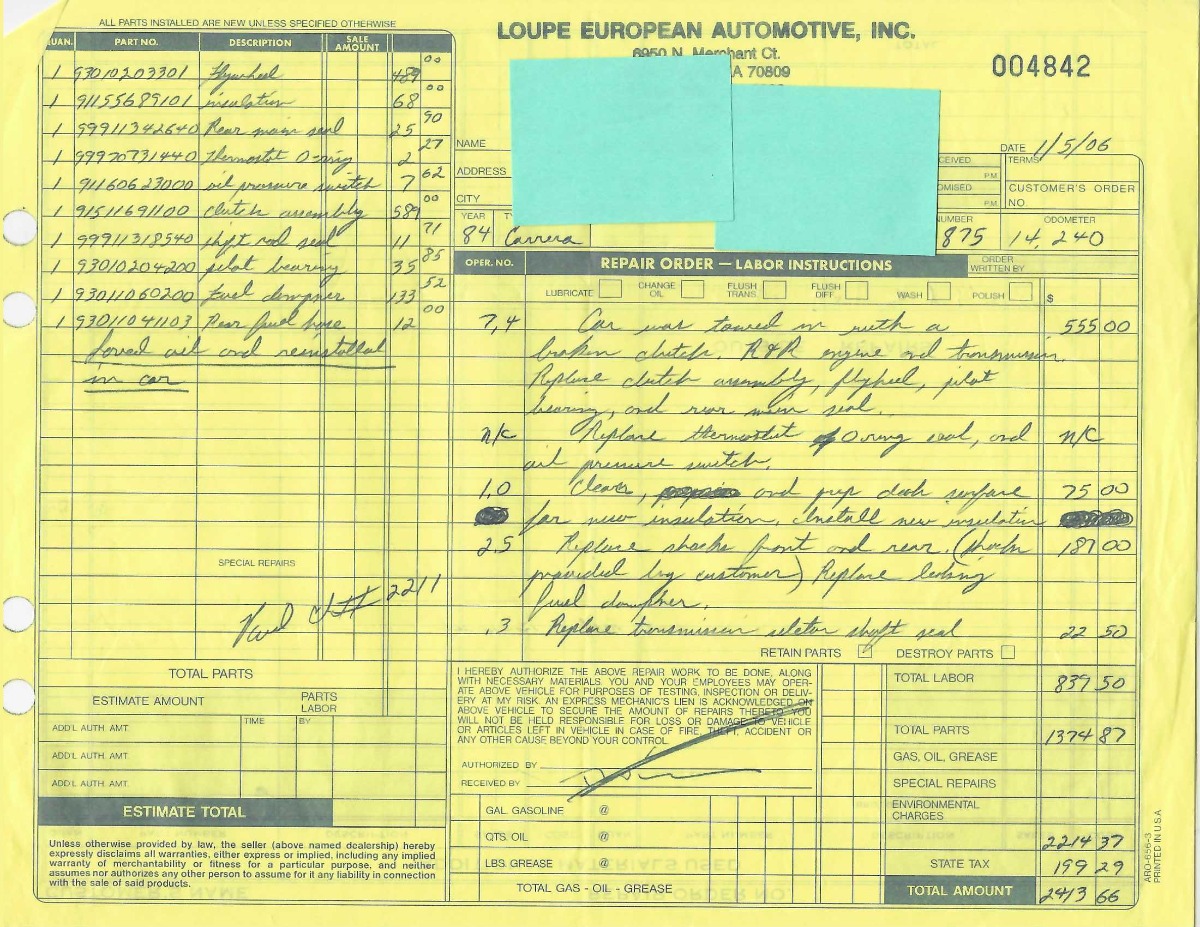 ALL PARTS INSTALLED ARE NEW UNLESS SPECIFIED OTHERWISE
QUAN. PART NO. DESCRIPTION SALE AMOUNT
1 93010203301 Flywheel 489 00
1 91155689101 insulation 68 00
1 99911342640 Rear main seal 25 90
1 99970731440 thermostat O-ring 2 27
1 91160623000 oil pressure switch 7 62
1 91511691100 clutch assembly 589 00
1 99911318540 shift rod seal 11 71
1 93010204200 pilot bearing 35 85
1 93011060200 Fuel dempner 133 52
1 93011041103 Rear fuel hose 12 00
oil and reinstalled
in car
SPECIAL REPAIRS
Paid 2211
TOTAL PARTS
ESTIMATE AMOUNT PARTS LABOR
ADD'L AUTH. AMT. TIME BY
ADD'L AUTH. AMT.
ADD'L AUTH. AMT.
ESTIMATE TOTAL
Unless otherwise provided by law, the seller (above named dealership) hereby
expressly disclaims all warranties, either express or implied, including any implied
warranty of merchantability or fitness for a particular purpose, and neither
assumes nor authorizes any other person to assume for it any liability in connection
with the sale of said products.
LOUPE EUROPEAN AUTOMOTIVE, INC.
6950 N. Merchant Ct.
A 70809
004842
NAME
DATE 1/5/06
ADDRESS
CEIVED P.M. TERMS
CITY
OMISED P.M. CUSTOMER'S ORDER NO.
YEAR NUMBER ODOMETER
84 Carrera 875 14,240
OPER. NO. REPAIR ORDER — LABOR INSTRUCTIONS ORDER WRITTEN BY
LUBRICATE CHANGE OIL FLUSH TRANS. FLUSH DIFF WASH POLISH $
7,4 Car was towed in with a 555 00
broken clutch. R&R engine and transmission.
Replace clutch assembly, flywheel, pilot
bearing, and rear main seal.
N/C Replace thermostat O ring seal, and N/C
oil pressure switch.
1,0 Clean, and prep deck surface 75 00
for new insulation. Install new insulation
2.5 Replace shocks front and rear. (shocks 187 00
provided by customer) Replace leaking
fuel dampner.
,3 Replace transmission seletor shaft seal 22 50
RETAIN PARTS DESTROY PARTS
I HEREBY AUTHORIZE THE ABOVE REPAIR WORK TO BE DONE, ALONG
WITH NECESSARY MATERIALS. YOU AND YOUR EMPLOYEES MAY OPER-
ATE ABOVE VEHICLE FOR PURPOSES OF TESTING, INSPECTION OR DELIV-
ERY AT MY RISK. AN EXPRESS MECHANIC'S LIEN IS ACKNOWLEDGED ON
ABOVE VEHICLE TO SECURE THE AMOUNT OF REPAIRS THERETO. YOU
WILL NOT BE HELD RESPONSIBLE FOR LOSS OR DAMAGE TO VEHICLE
OR ARTICLES LEFT IN VEHICLE IN CASE OF FIRE, THEFT, ACCIDENT OR
ANY OTHER CAUSE BEYOND YOUR CONTROL.
AUTHORIZED BY
RECEIVED BY
TOTAL LABOR 839 50
TOTAL PARTS 1374 87
GAS, OIL, GREASE
SPECIAL REPAIRS
ENVIRONMENTAL CHARGES
GAL. GASOLINE @
QTS. OIL @ 2214 37
LBS. GREASE @ STATE TAX 199 29
TOTAL GAS - OIL - GREASE TOTAL AMOUNT 2413 66
ARO-656-3
PRINTED IN U.S.A.